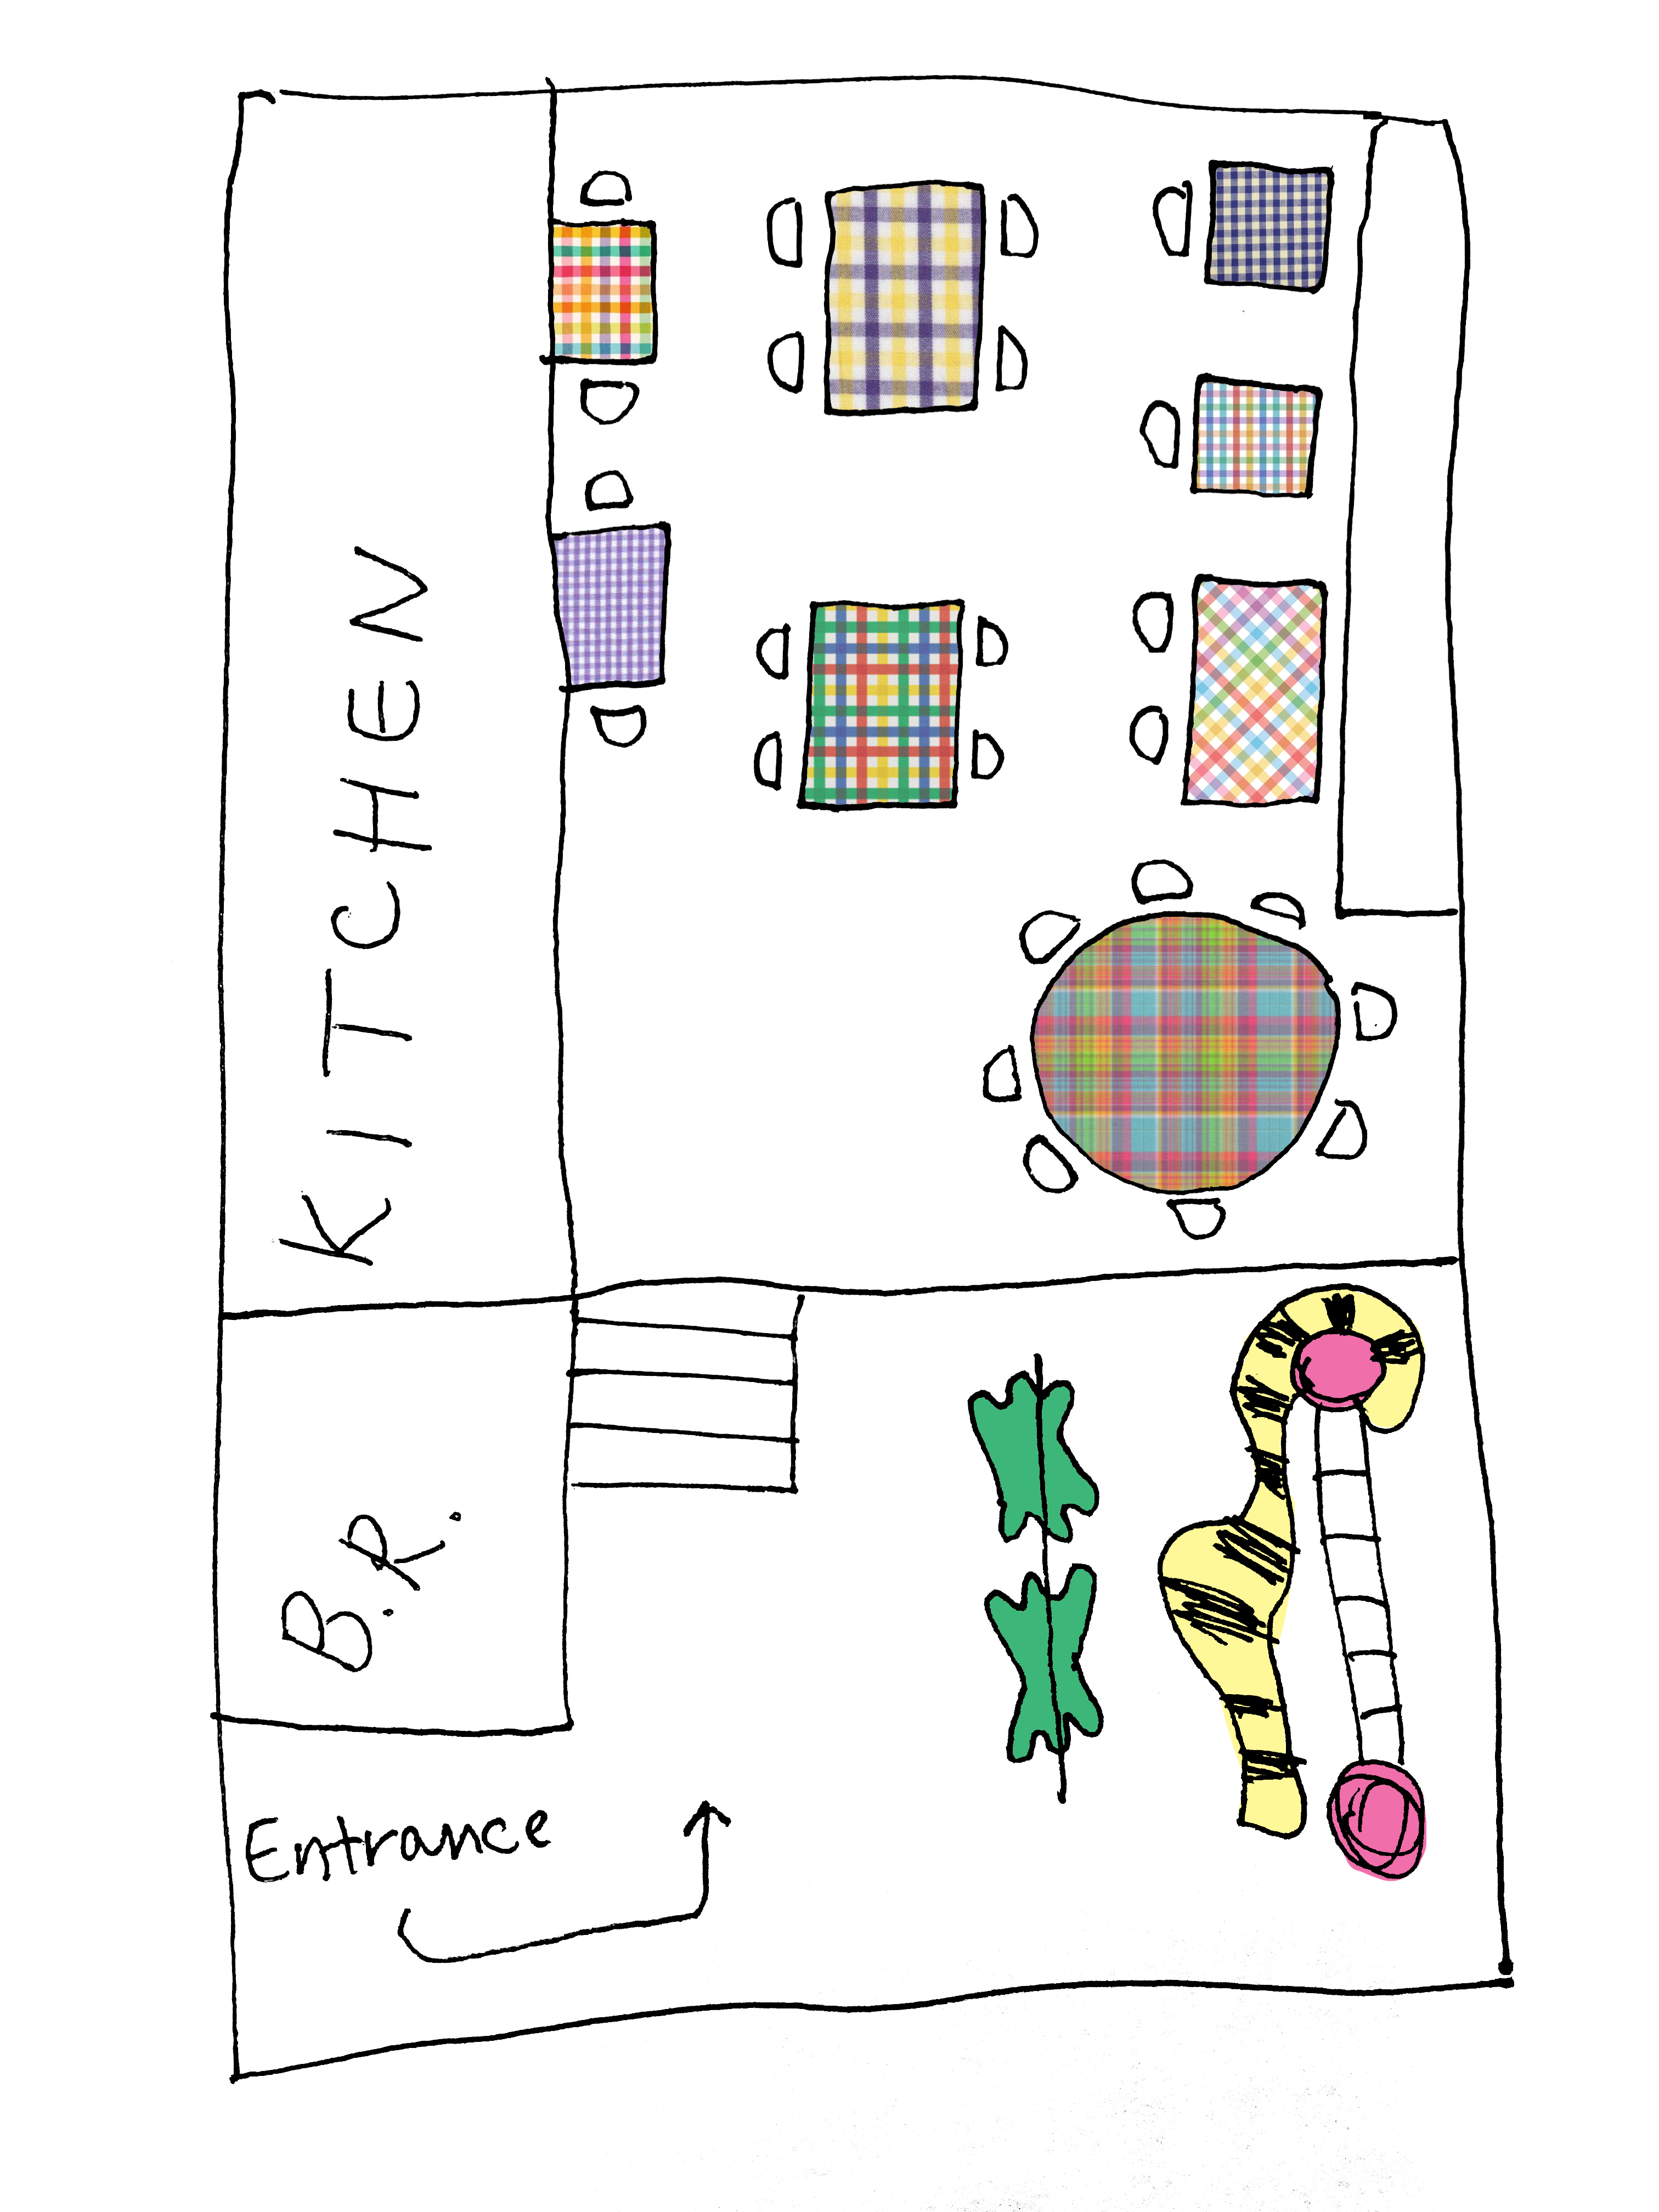 KITCHEN
B.R.
Entrance